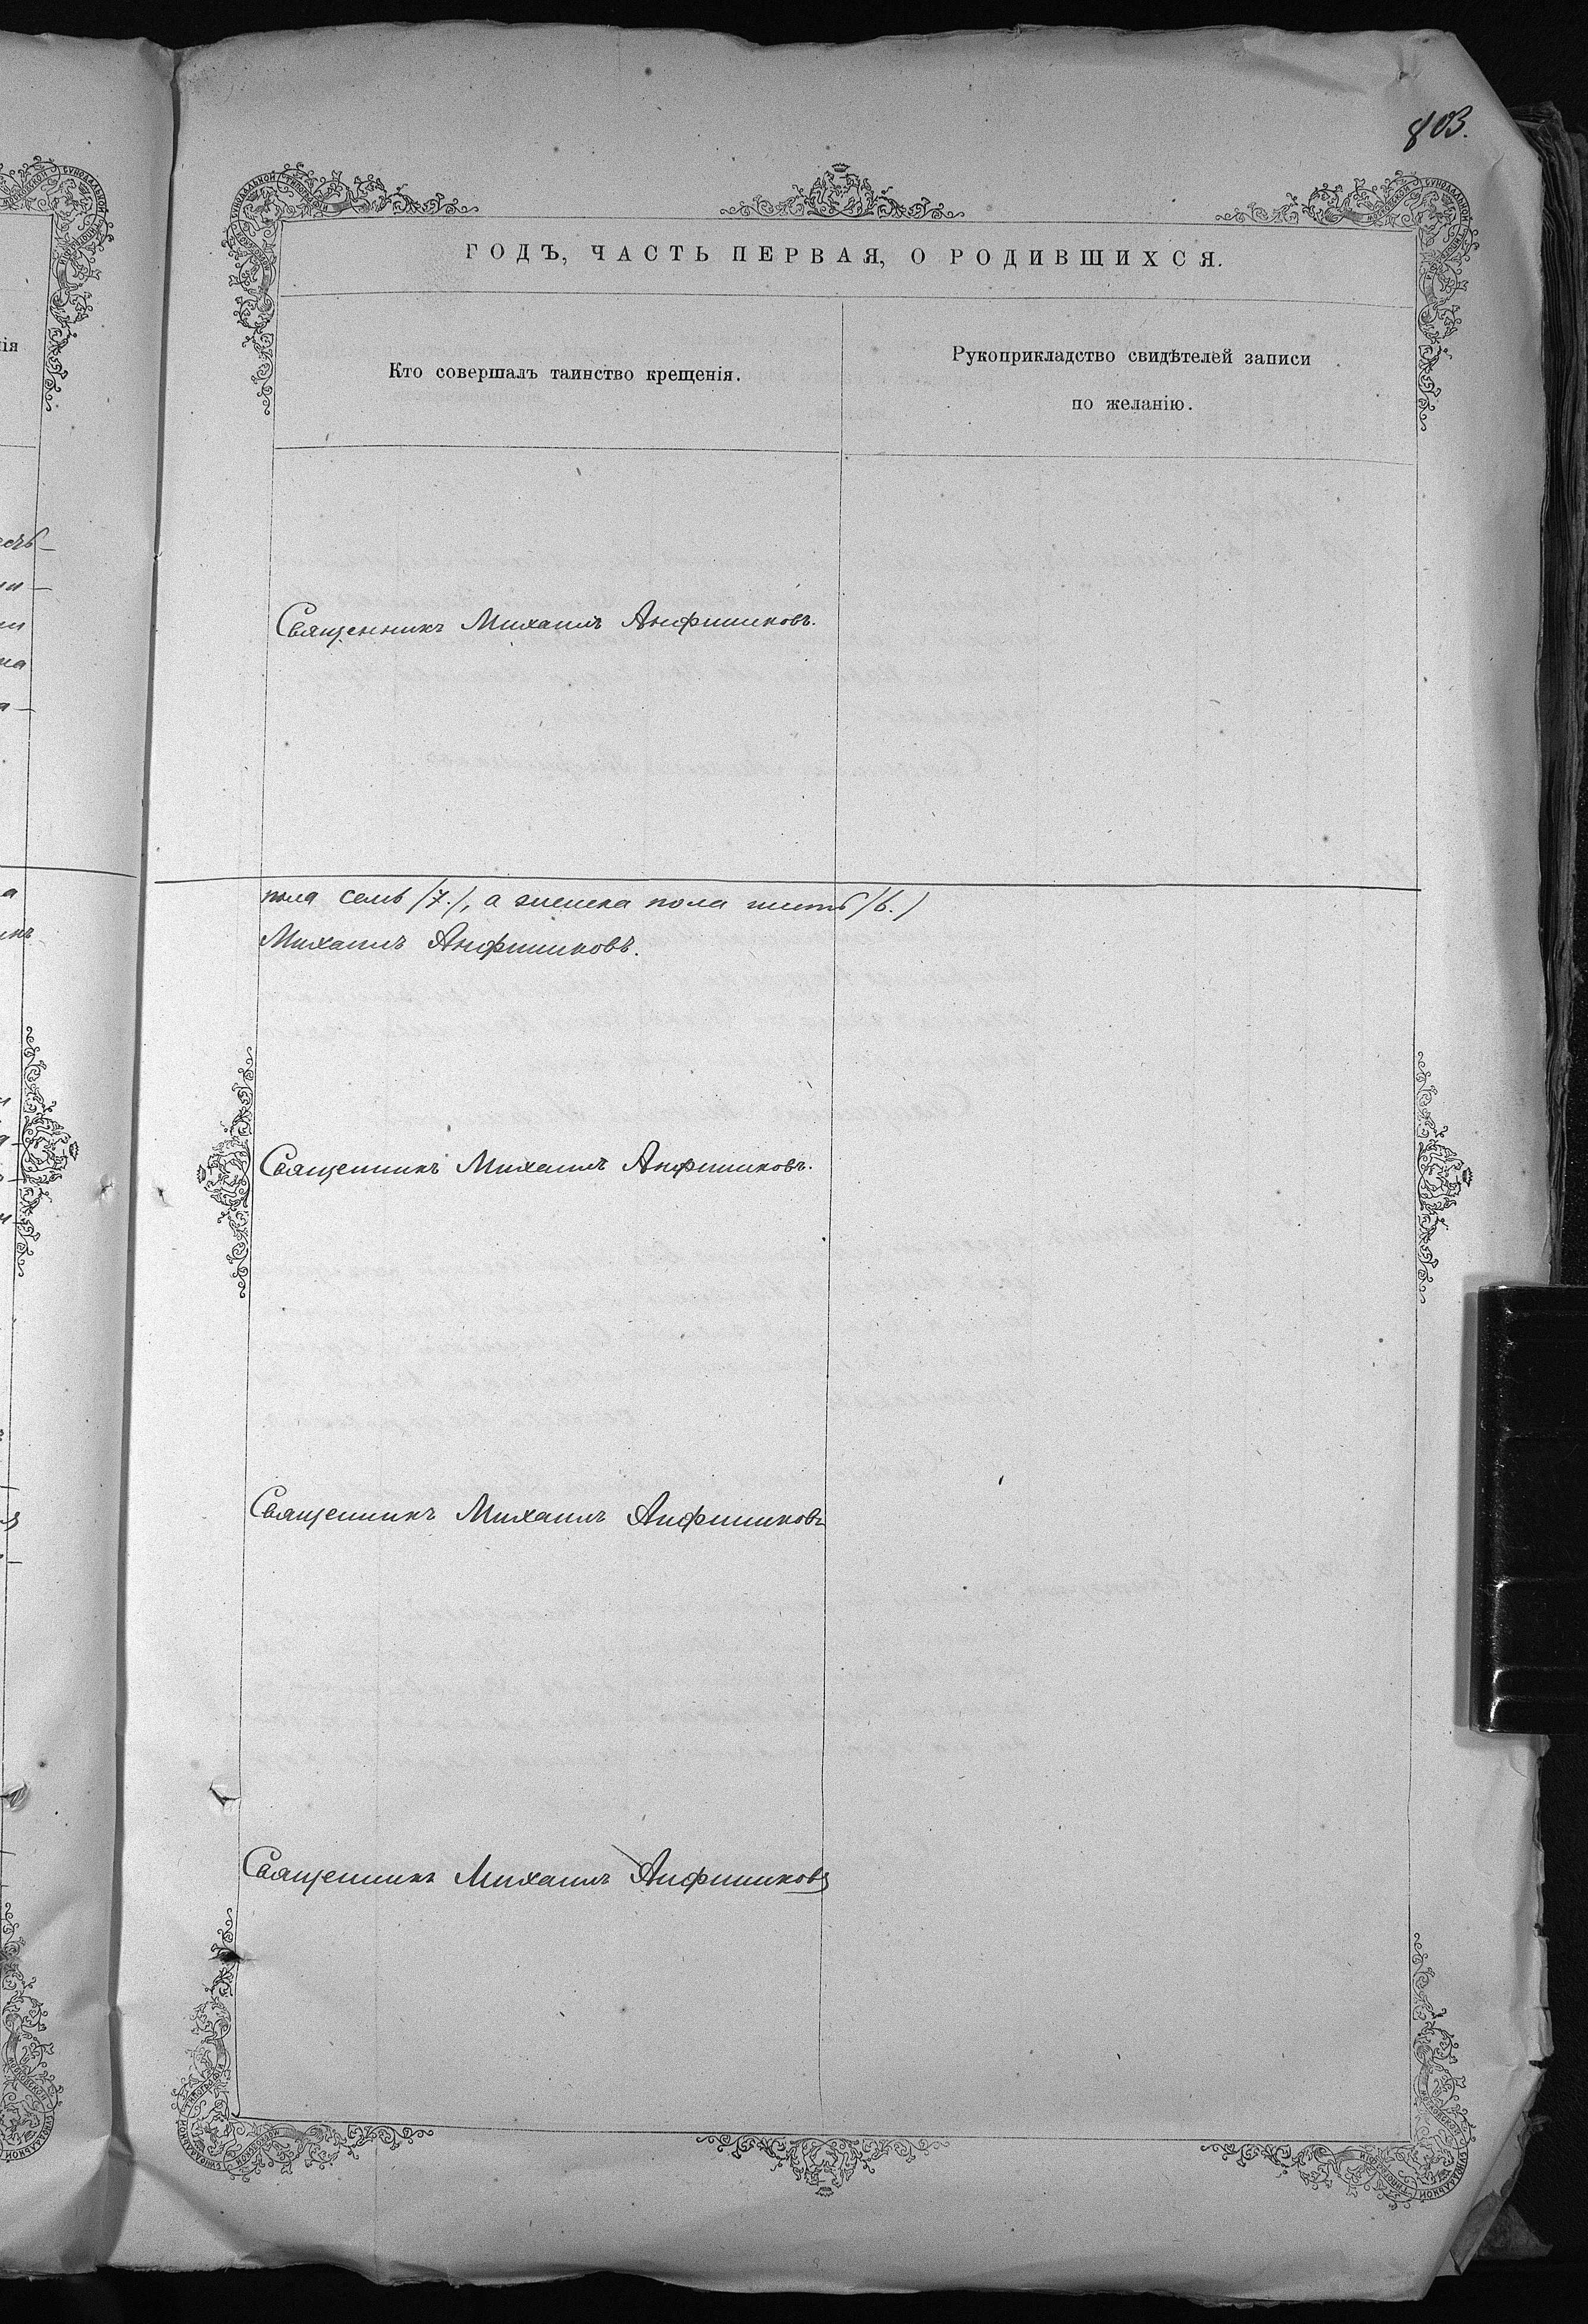 803.
ГОДЪ, ЧАСТЬ ПЕРВАЯ, О РОДИВШИХСЯ.
Кто совершалъ таинство крещенія.
Рукоприкладство свидѣтелей записи
по желанію.
Священникъ Михаилъ Анфишиковъ.
пола семь /7./, а женска пола шесть /6./
Михаилъ Анфишиковъ.
Священникъ Михаилъ Анфишиковъ.
Священникъ Михаилъ Анфишиковъ
Священникъ Михаилъ Анфишиковъ